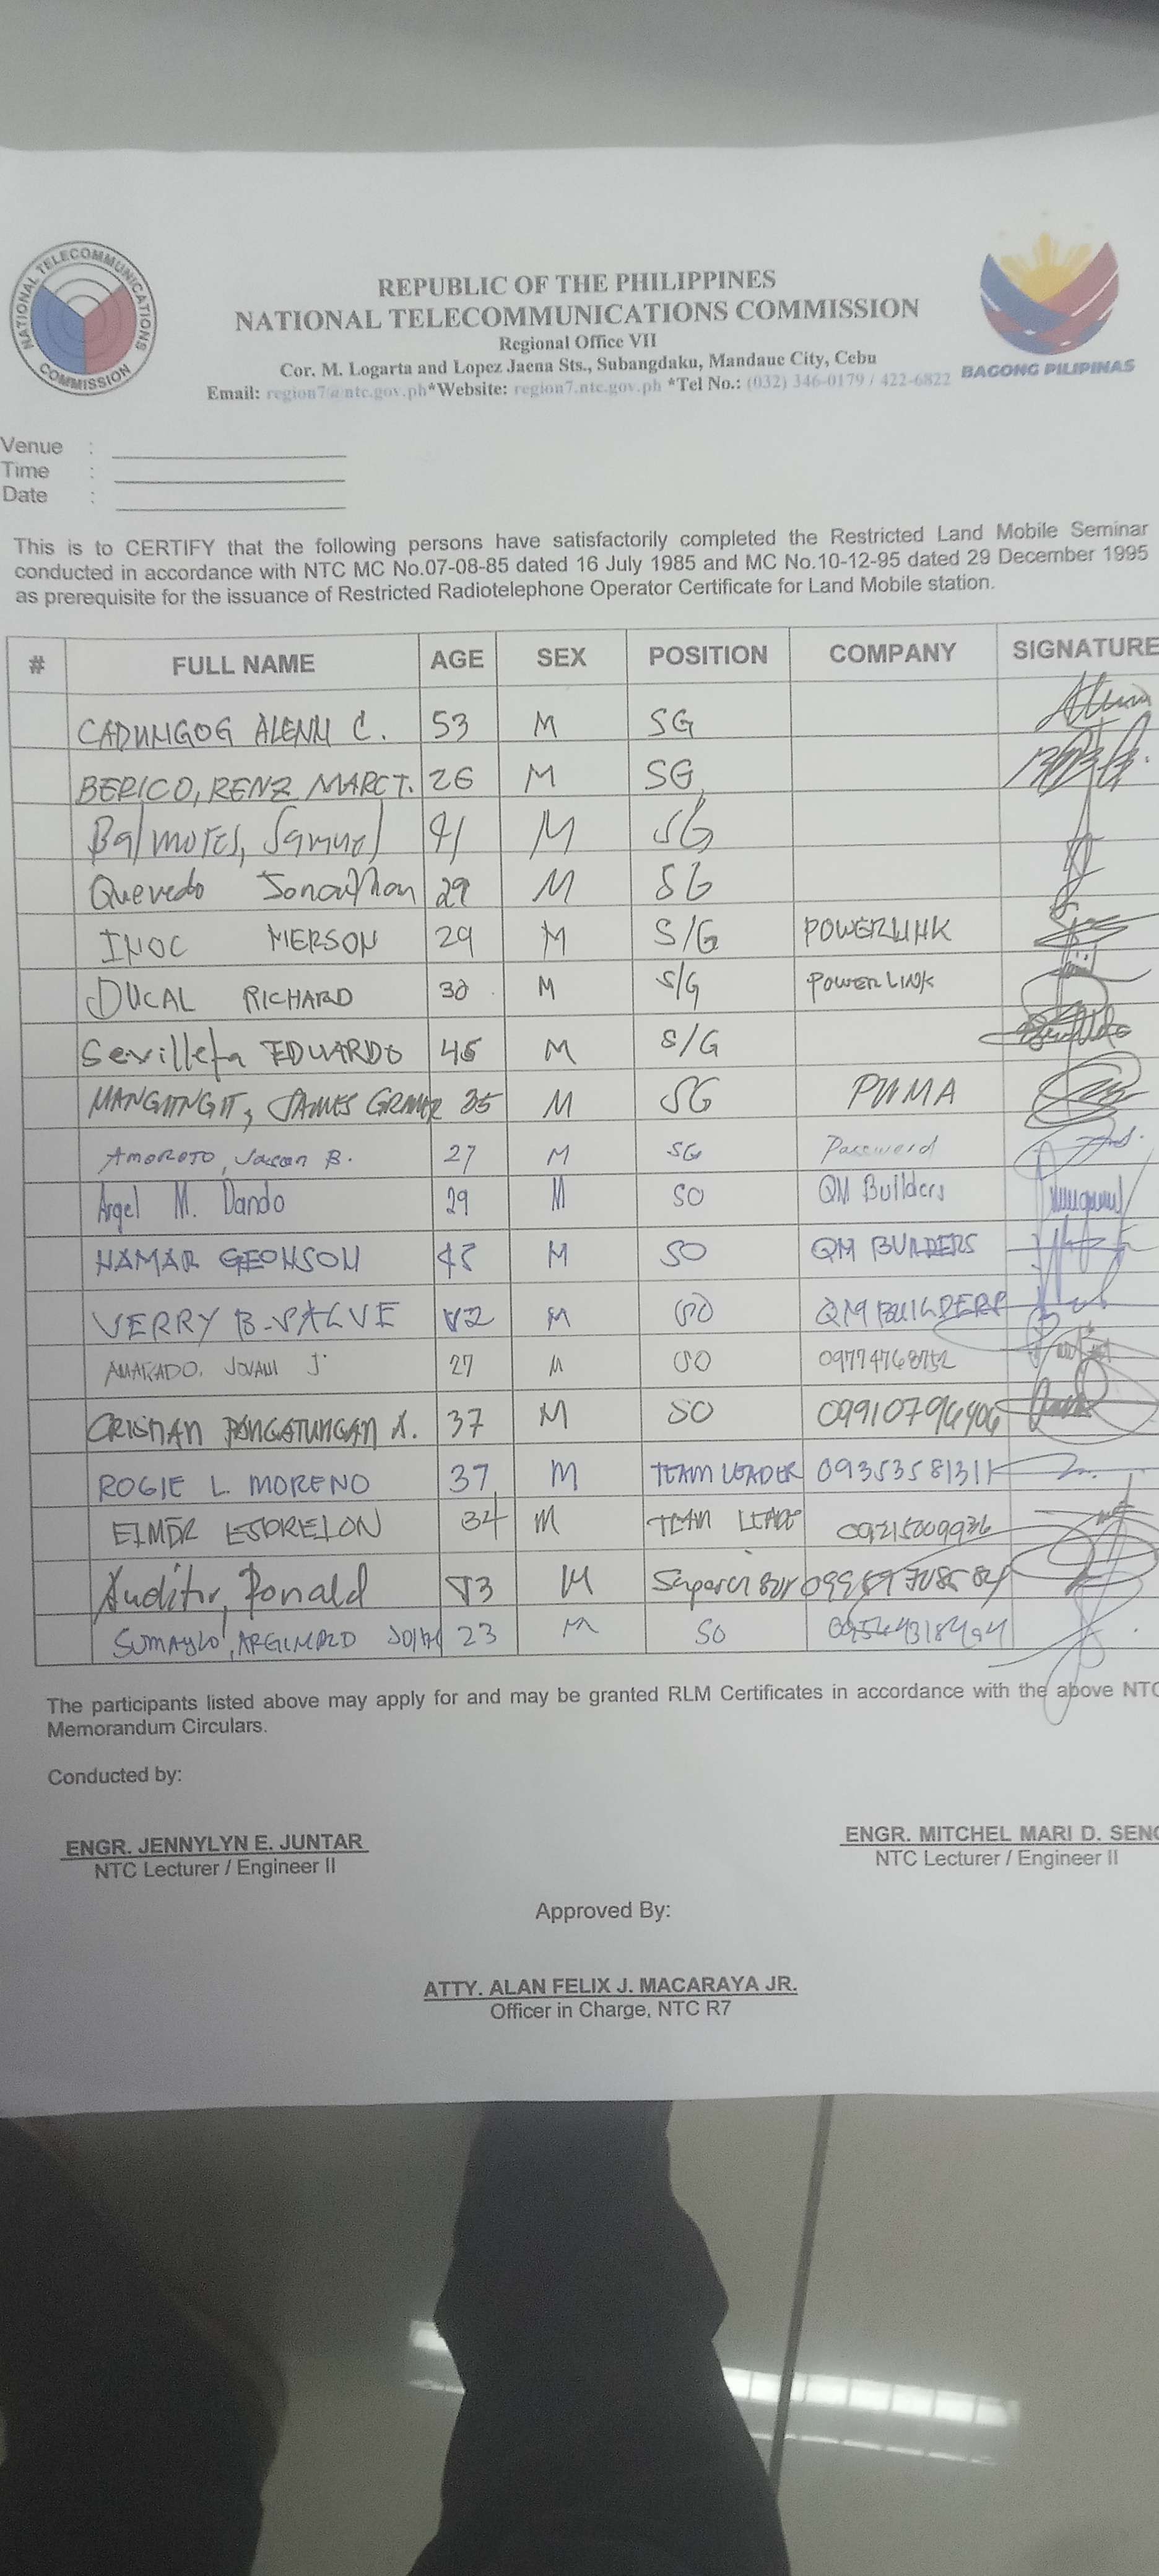 NATIONAL TELECOMMUNICATIONS COMMISSION
REPUBLIC OF THE PHILIPPINES
NATIONAL TELECOMMUNICATIONS COMMISSION
Regional Office VII
Cor. M. Logarta and Lopez Jaena Sts., Subangdaku, Mandaue City, Cebu
Email: region7@ntc.gov.ph*Website: region7.ntc.gov.ph *Tel No.: (032) 346-0179 / 422-6822
BAGONG PILIPINAS
Venue :
Time :
Date :
This is to CERTIFY that the following persons have satisfactorily completed the Restricted Land Mobile Seminar
conducted in accordance with NTC MC No.07-08-85 dated 16 July 1985 and MC No.10-12-95 dated 29 December 1995
as prerequisite for the issuance of Restricted Radiotelephone Operator Certificate for Land Mobile station.
# FULL NAME AGE SEX POSITION COMPANY SIGNATURE
CADUNGOG ALENN C. 53 M SG
BERICO, RENZ MARC T. 26 M SG
Balmores, Samuel 41 M SG
Quevedo Jonathan 29 M SG
INOC MERSON 29 M S/G POWERLINK
DUCAL RICHARD 30 M S/G POWERLINK
EDUARDO M S/G
JAMES 35 M SG
AMOROTO, B. 27 M SG Password
Argel M. Dando 29 M SO QM Builders
HAMAR GEONSON M SO QM BUILDERS
VERRY B. M SO QM BUILDERS
27 M SO
37 M SO
ROGIE L. MORENO 37 M TEAM LEADER
34 M TEAM
Auditor, Ronald M
23 M SO
The participants listed above may apply for and may be granted RLM Certificates in accordance with the above NTC
Memorandum Circulars.
Conducted by:
ENGR. JENNYLYN E. JUNTAR
NTC Lecturer / Engineer II
ENGR. MITCHEL MARI D. SENO
NTC Lecturer / Engineer II
Approved By:
ATTY. ALAN FELIX J. MACARAYA JR.
Officer in Charge, NTC R7